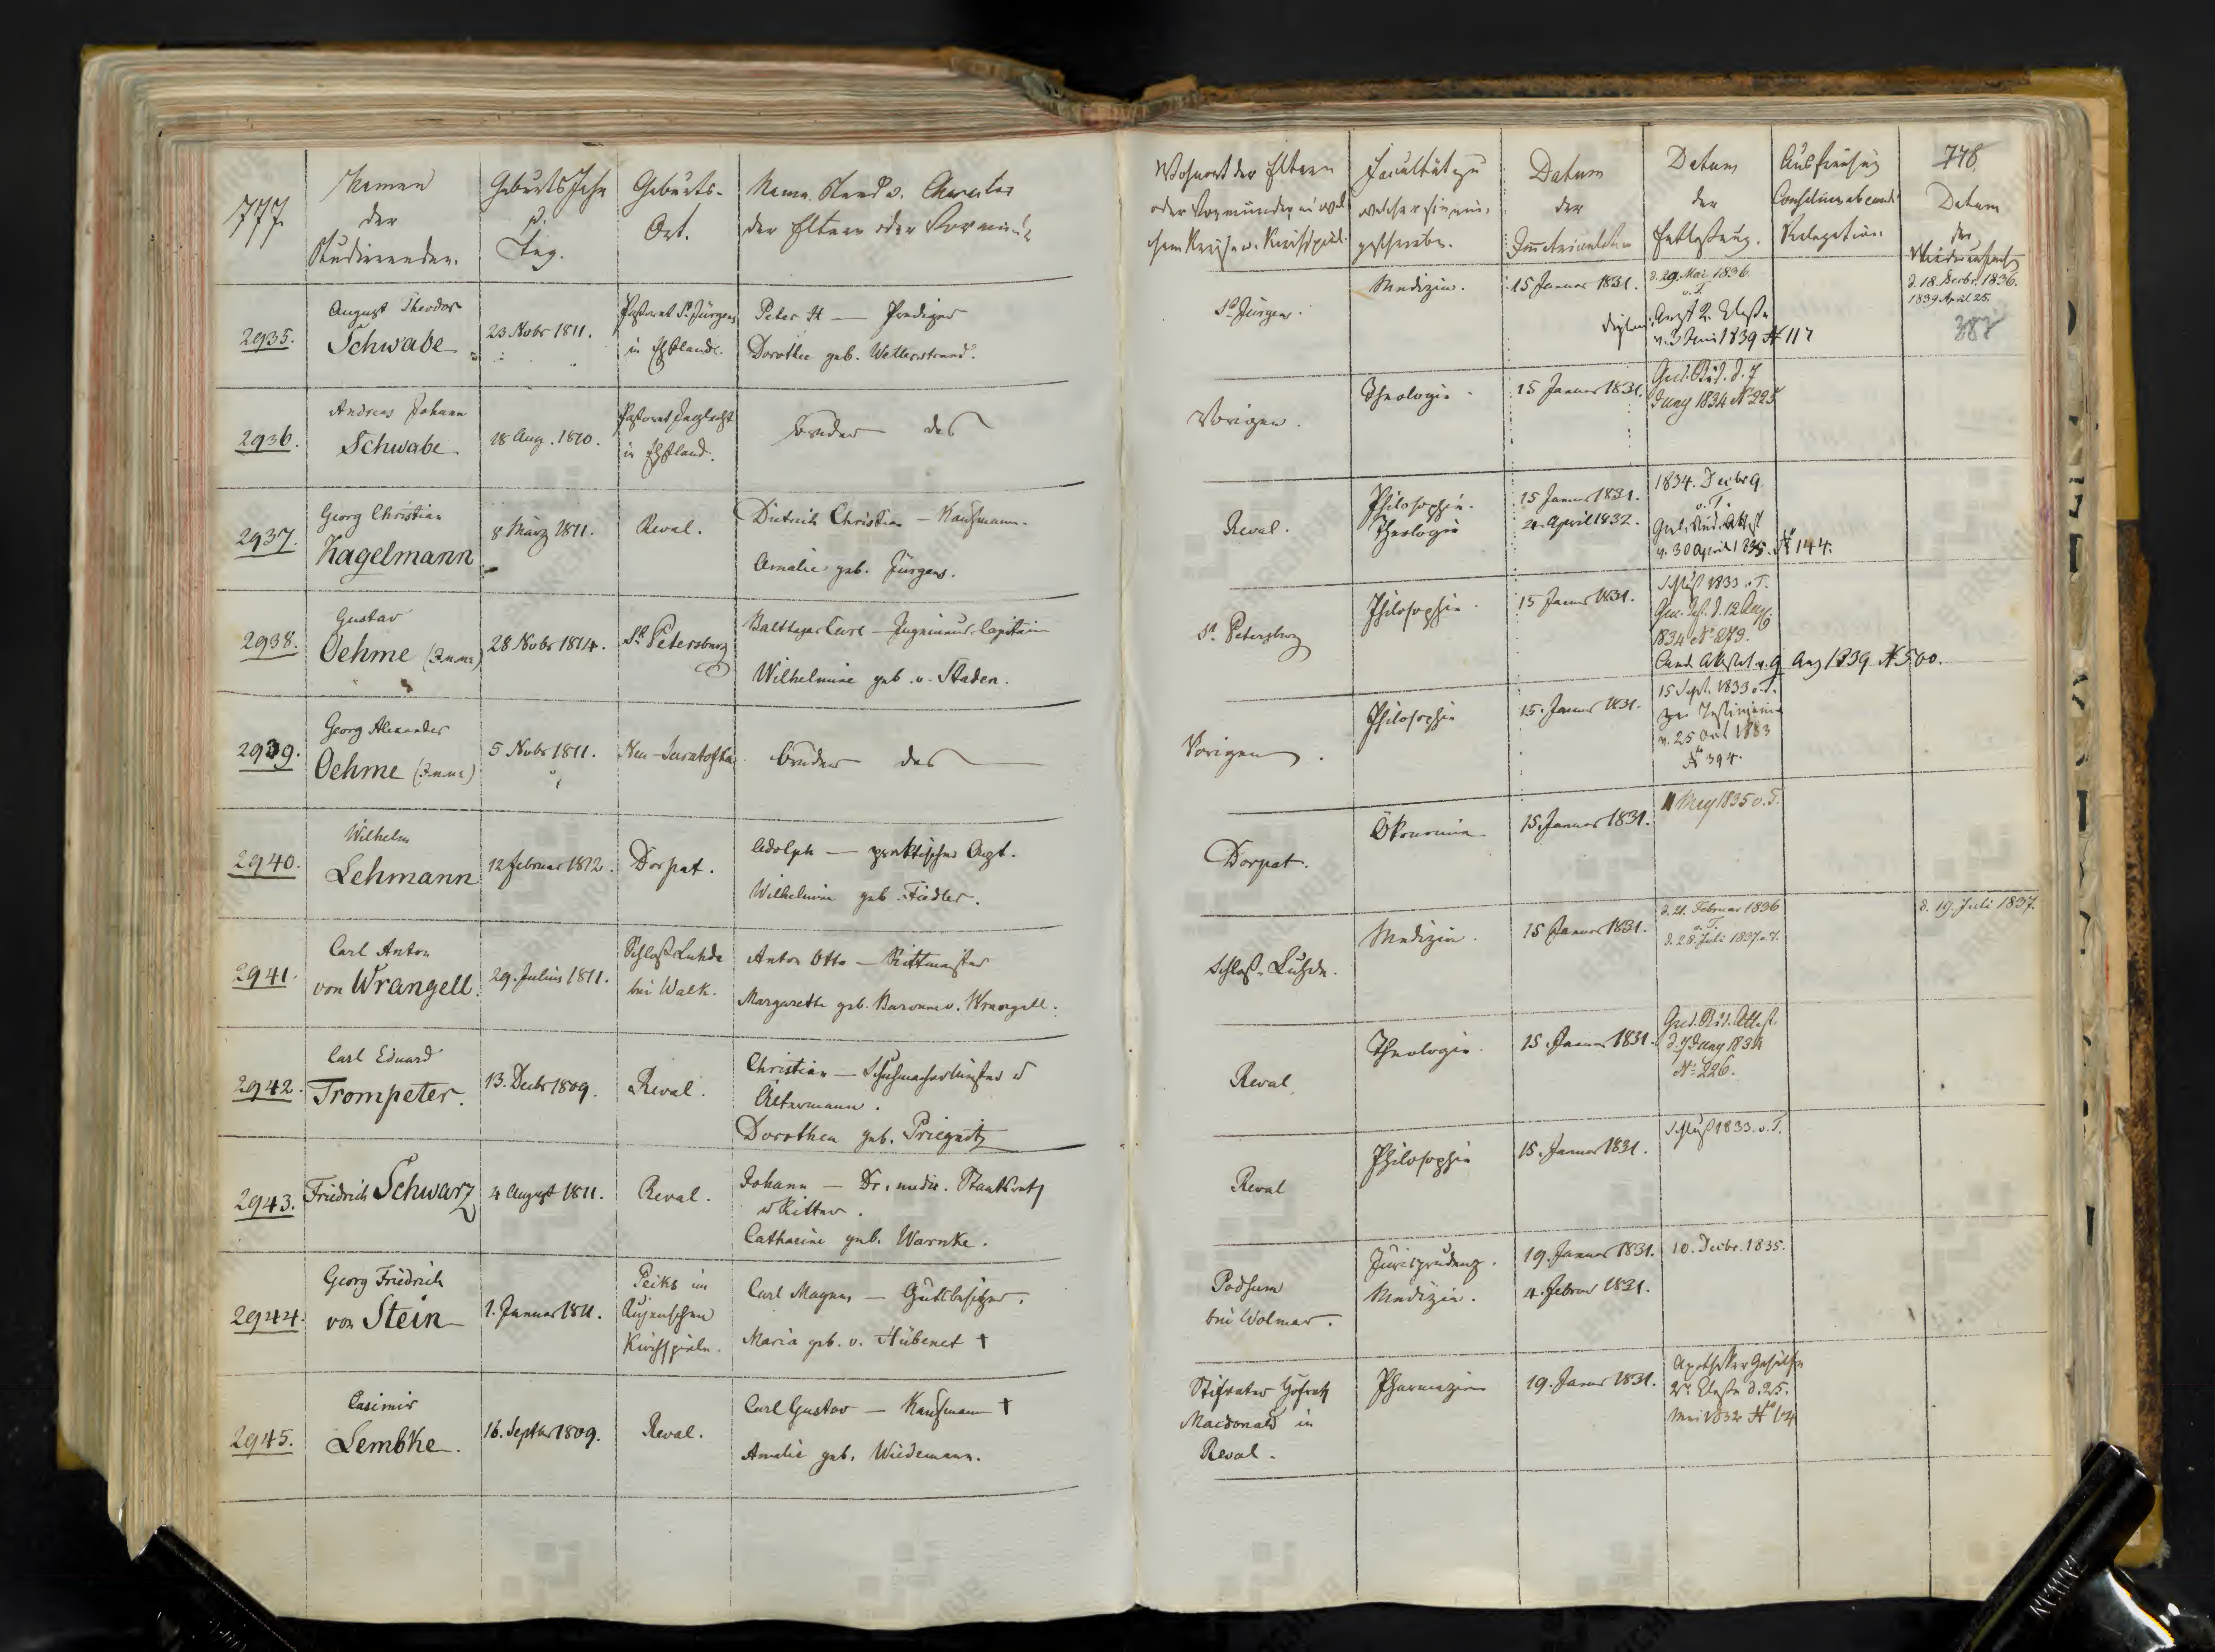 777.
Namen
der
Studierenden.
Geburts Jahr
u.
Tag.
Geburts-
Ort.
Name Stand u. Charakter
der Eltern oder Vormünd
Wohnort der Eltern
oder Vormünder in wel
chem Kreise u. Kirchspiel.
Facultät zu
welcher sie ein,
geschrieben.
Datum
der
Immatriculation
Datum
der
Entlaßung.
Ausschließung
Consilium abeundi
Relegation.
778.
Datum
der
Wiederaufnahme
2935.
August Theodor
Schwabe
23 Nobr 1811.
Pastorat St. Jürgens
in Ehstland.
Peter H — Prediger
Dorothee geb. Wetterstrand.
St. Jürgen.
Medizin.
15 Januar 1831.
d. 29. Mai 1836.
o. T.
Arzt 2. Classe
v. 3 Juni 1839 N 117
d. 18. Decbr. 1836.
1839 April 25.
387
2936.
Andreas Johann
Schwabe.
18 Aug. 1810.
Pastorat Jeglecht
in Ehstland.
Bruder des
Vorigen.
Theologie.
15 Januar 1831.
Grad. Stud. d. 7
Juny 1834 No 225
2937.
Georg Christian
Hagelmann
8 März 1811.
Reval.
Dietrich Christian — Kaufmann.
Amalie geb. Jürgens.
Reval.
Philosophie.
Theologie
15 Januar 1831.
21 April 1832.
1834. Decbr 9.
o. T.
Grad. Stud. Attest
v. 30 April 1835. N 144.
2938.
Gustav
Oehme
28 Nobr 1814.
St Petersburg
Balthasar Carl — Ingenieur-Capitain
Wilhelmine geb. v. Staden.
St. Petersburg
Philosophie.
15 Januar 1831.
Schluß 1833 o. T.
1834 No 279.
Cand. Attestat v. 9 Aug 1839 N 500.
2939.
Georg Alexander
Oehme
5 Nobr 1811.
Bruder des
Vorigen.
Philosophie
15. Januar 1831.
15 Sept. 1833 o. T.
v. 25 Oct 1833
N 394.
2940.
Wilhelm
Lehmann
12 Februar 1812.
Dorpat.
Adolph — praktischer Arzt.
Wilhelmine geb. Fiedler.
Dorpat.
Ökonomie.
15. Januar 1831.
11 May 1835 o. T.
2941.
Carl Anton
von Wrangell.
29. Julius 1811.
Schloß Luhde
bei Walk.
Anton Otto — Rittmeister
Margarethe geb. Baronne v. Wrangell.
Schloß-Luhde.
Medizin.
15 Januar 1831.
d. 21. Februar 1836
o. T.
d. 28. Juli 1837 o. T.
d. 19. Juli 1837.
2942.
Carl Eduard
Trompeter.
13. Decbr 1809.
Reval.
Christian — Schuhmachermeister u
Ältermann.
Dorothea geb. Priegnitz
Reval.
Theologie.
15. Januar 1831.
Grad. Stud. Attest.
d. 7 Juny 1834
No. 226.
2943.
Friedrich Schwarz
4 August 1811.
Reval.
Johann — Dr. medic. Staatsrath
u Ritter.
Catharine geb. Warnke.
Reval
Philosophie
15. Januar 1831.
Schluß 1833. o. T.
2944.
Georg Friedrich
von Stein
1. Januar 1811.
Peiks im
Rujenschen
Kirchspiele.
Carl Magnus — Gutsbesitzer.
Maria geb. v. Hübenet †
bei Wolmar.
Jurisprudenz.
Medizin.
19. Januar 1831.
4. Februar 1831.
10. Decbr. 1835.
2945.
Casimir
Lembke.
16. Septbr 1809.
Reval.
Carl Gustav — Kaufmann †
Amalie geb. Wiedemann.
Stiefvater Hofrath
Macdonald in
Reval.
Pharmazie
19. Januar 1831.
Apotheker Gehülfe
2r. Classe d. 25.
Mai 1832